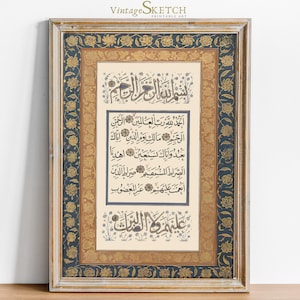 VintageSKETCH
PRINTABLE ART
بسم الله الرحمن الرحيم
الحمد لله رب العالمين
الرحمن الرحيم مالك يوم الدين إياك
نعبد وإياك نستعين اهدنا
الصراط المستقيم صراط الذين
أنعمت عليهم غير المغضوب
عليهم ولا الضالين